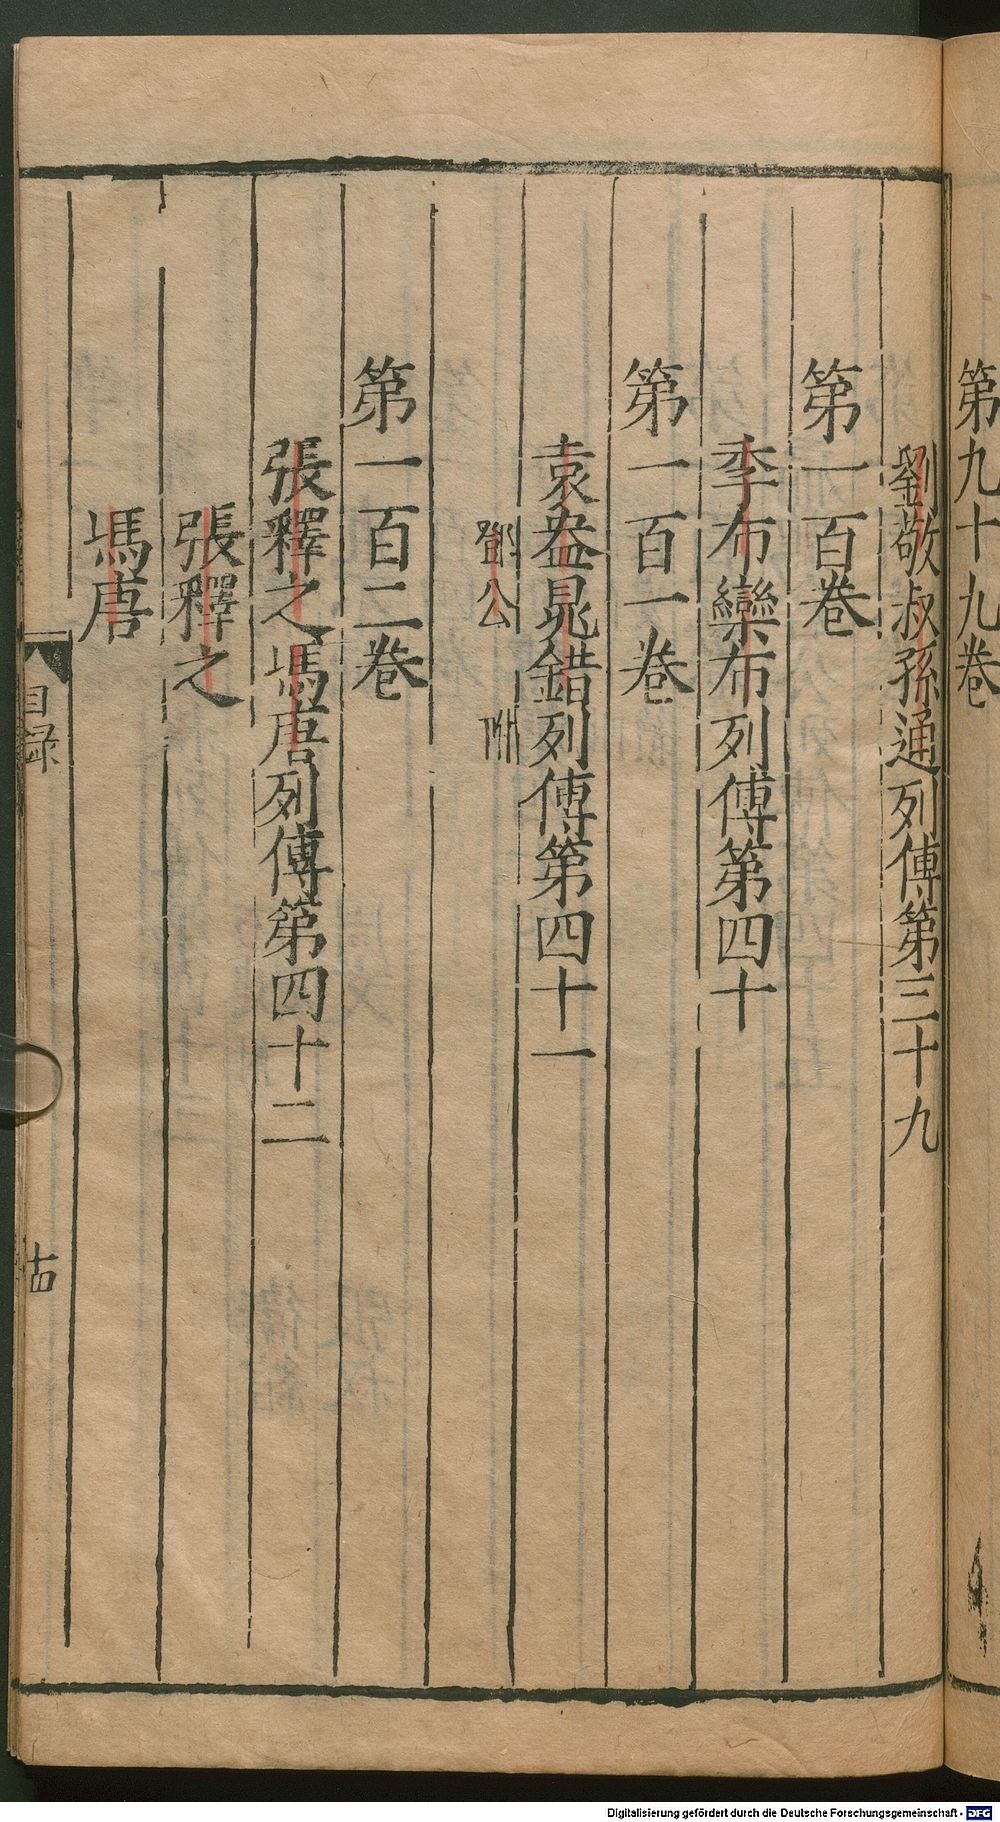 第九十九卷
劉敬叔孫通列傳第三十九
第一百卷
季布欒布列傳第四十
第一百一卷
袁盎晁錯列傳第四十一
鄧公 附
第一百二卷
張釋之馮唐列傳第四十二
張釋之
馮唐
目録
十四
Digitalisierung gefördert durch die Deutsche Forschungsgemeinschaft - DFG